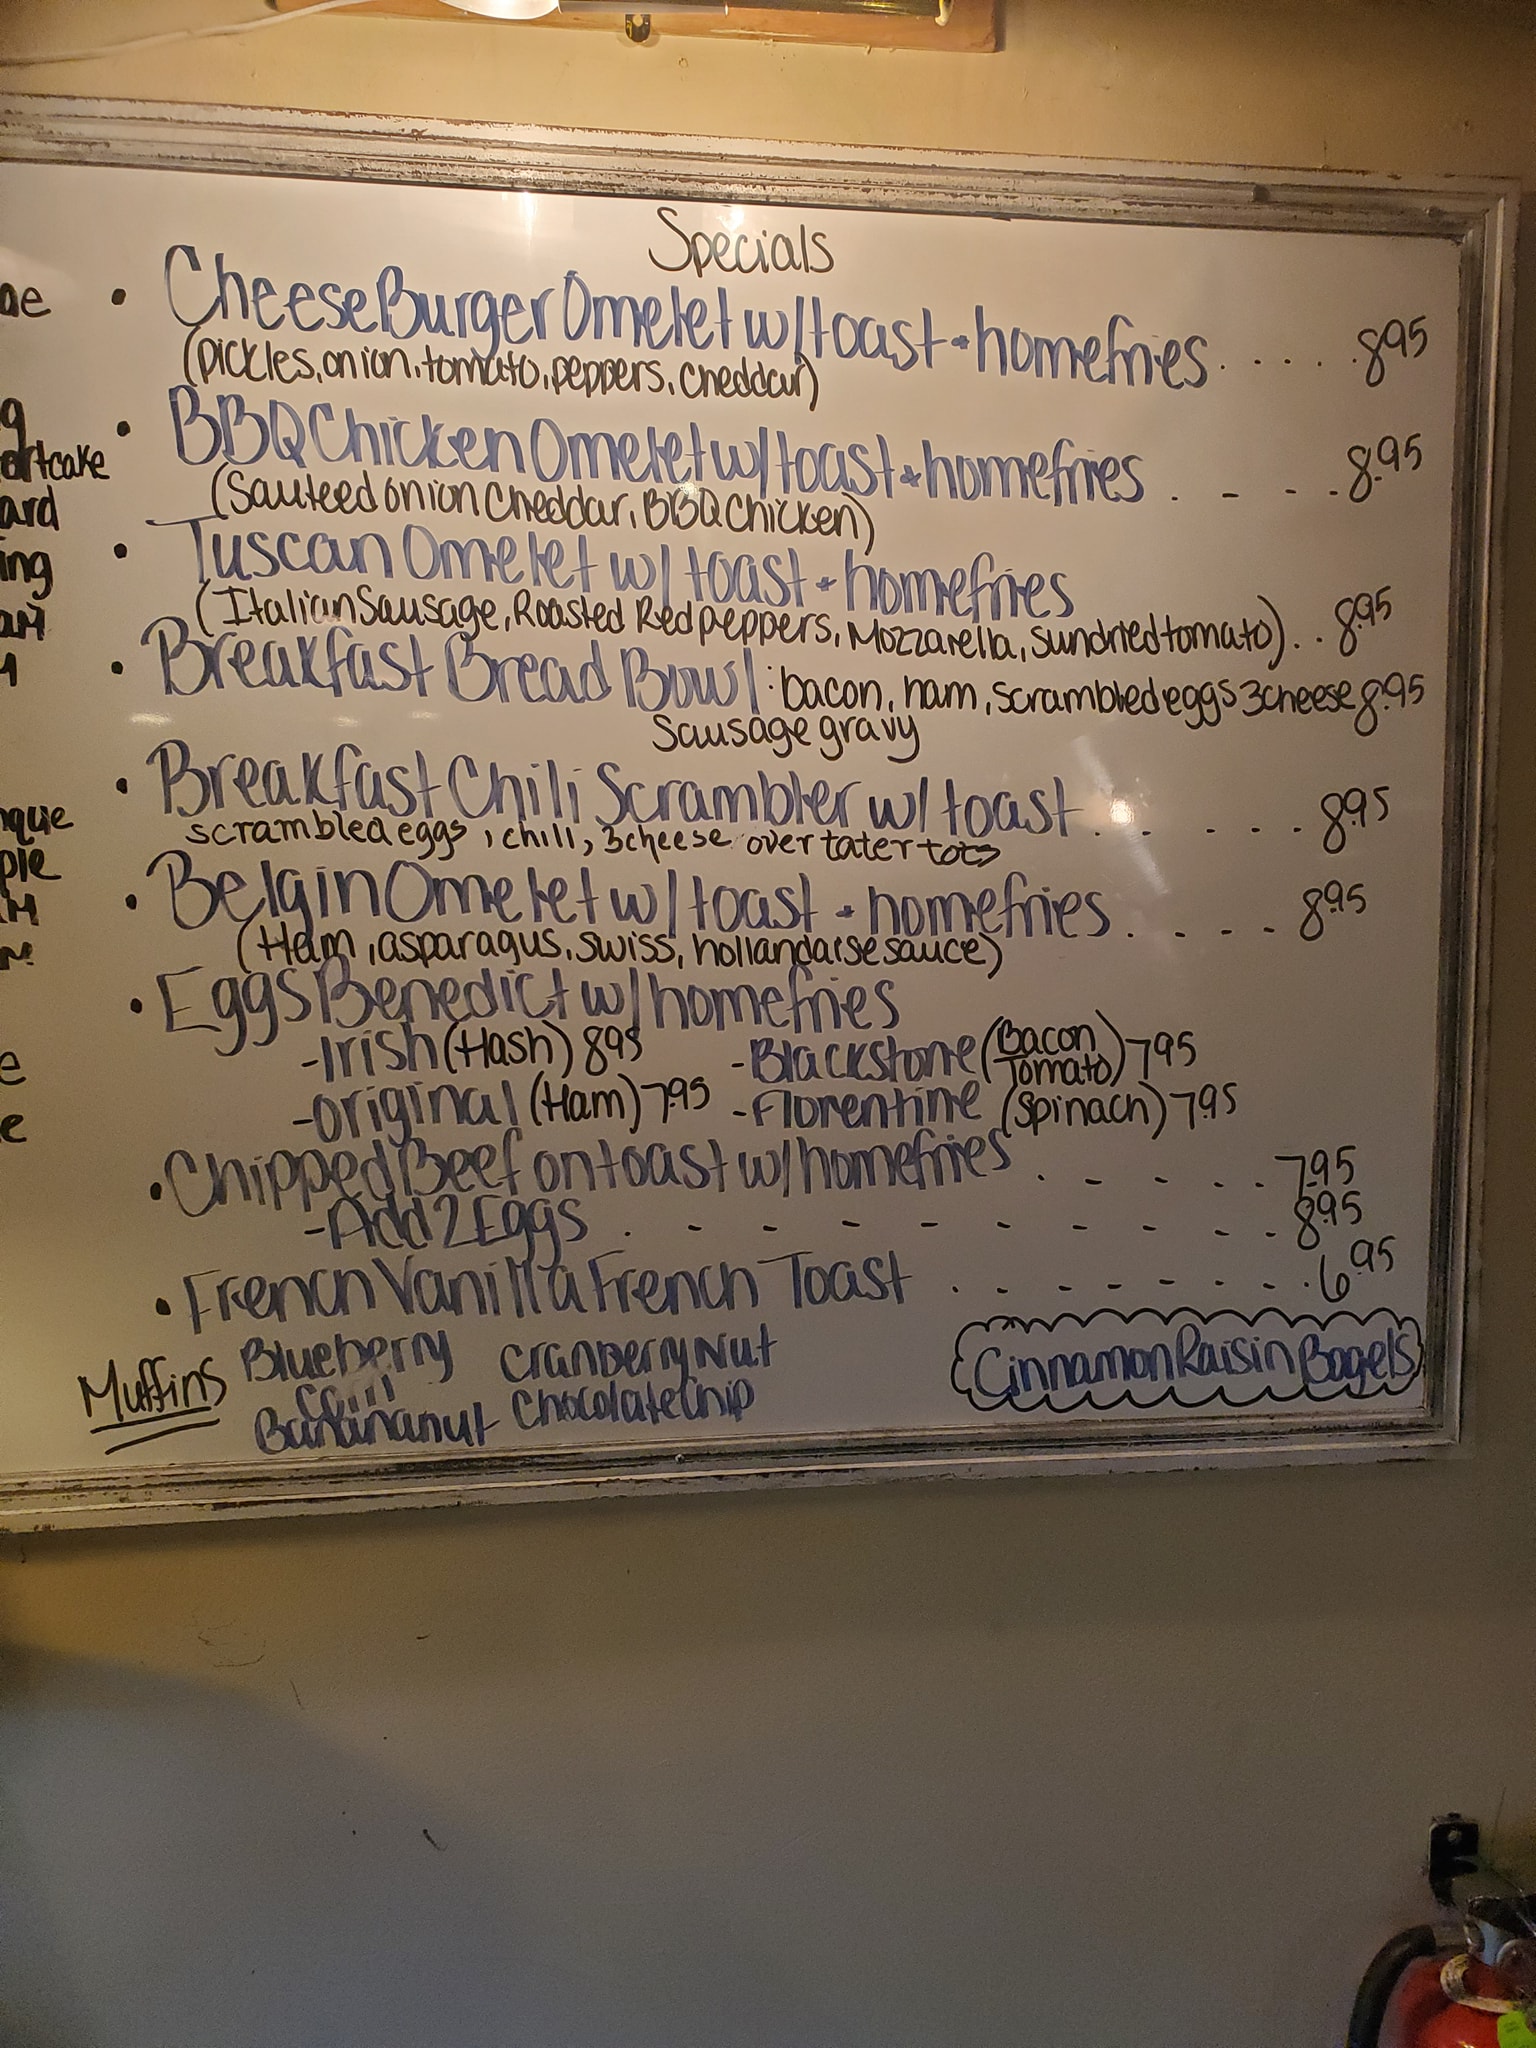 Specials
• CheeseBurger Omelet w/ toast + homefries.....8.95
(pickles, onion, tomato, peppers, cheddar)
• BBQ Chicken Omelet w/ toast + homefries . - - - . 8.95
(Sauteed onion Cheddar, BBQ Chicken)
• Tuscan Omelet w/ toast + homefries
(Italian Sausage, Roasted Red peppers, Mozzarella, sundried tomato) . . 8.95
• Breakfast Bread Bowl: bacon, ham, scrambled eggs 3 cheese 8.95
Sausage gravy
• Breakfast Chili Scrambler w/ toast . . - - - . 8.95
scrambled eggs, chili, 3 cheese over tater tots
• Belgin Omelet w/ toast + homefries . - - - - 8.95
(Ham, asparagus, swiss, hollandaise sauce)
• Eggs Benedict w/ homefries
-Irish (Hash) 8.95 -Blackstone (Bacon Tomato) 7.95
-original (Ham) 7.95 -Florentine (Spinach) 7.95
• Chipped Beef on toast w/ homefries . - - - . . 7.95
-Add 2 Eggs . - - - - - - - - 8.95
• French Vanilla French Toast . . - - - - - . 6.95
Muffins Blueberry Cranberry Nut
Corn Chocolate Chip
Banananut
Cinnamon Raisin Bagels
ortcake
ard
ing
pie